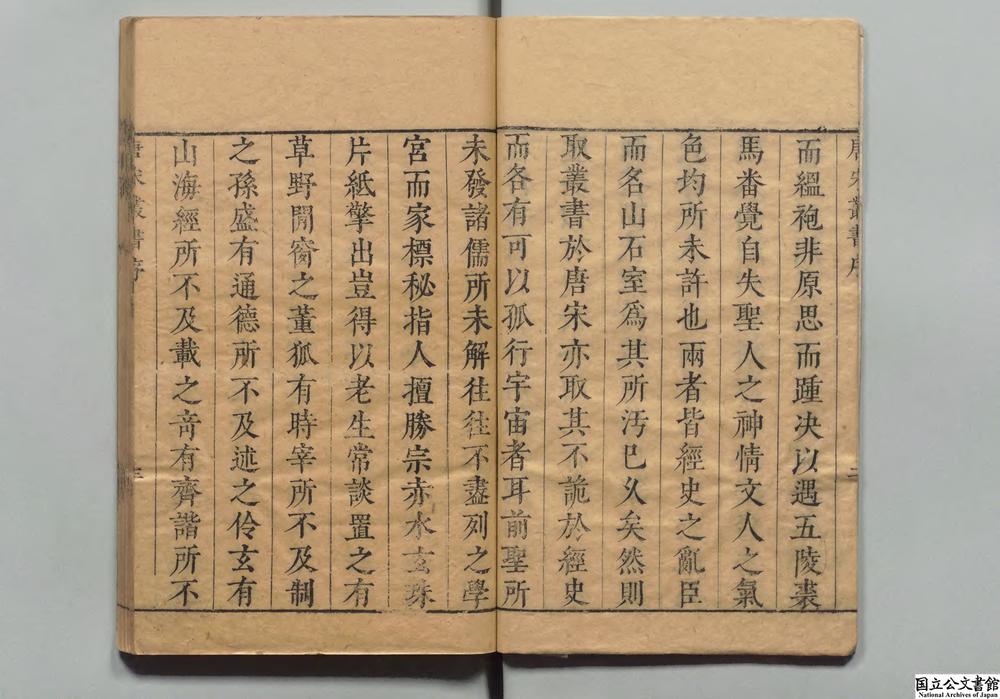 唐宋叢書序
二
而縕袍非原思而踵决以遇五陵裘
馬畨覺自失聖人之神情文人之氣
色均所未許也兩者皆經史之亂臣
而名山石室爲其所汚已久矣然則
取叢書於唐宋亦取其不詭於經史
而各有可以孤行宇宙者耳前聖所
未發諸儒所未解往往不盡列之學
宮而家標秘指人擅勝宗赤水玄珠
片紙擎出豈得以老生常談置之有
草野閒窗之董狐有時宰所不及制
之孫盛有通德所不及述之伶玄有
山海經所不及載之竒有齊諧所不
唐宋叢書序
国立公文書館
National Archives of Japan